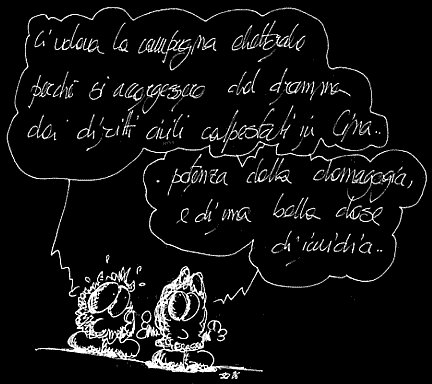 Ci voleva la campagna elettorale
perché si accorgessero del dramma
dei diritti civili calpestati in Cina..
. potenza della demagogia,
e di una bella dose
di invidia..